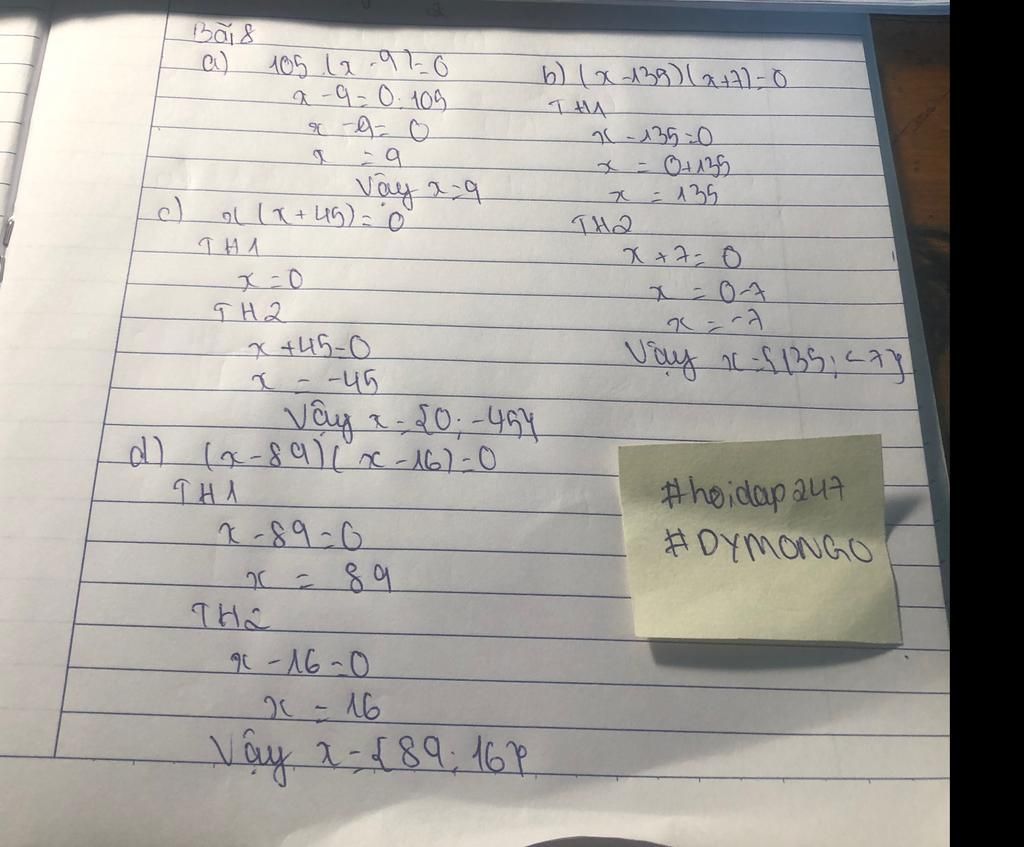 Bài 8
a) 105 (x - 9) = 0
x - 9 = 0 : 105
x - 9 = 0
x = 9
Vậy x = 9
b) (x - 135)(x + 7) = 0
TH1
x - 135 = 0
x = 0 + 135
x = 135
TH2
x + 7 = 0
x = 0 - 7
x = -7
Vậy x = {135; -7}
c) x (x + 45) = 0
TH1
x = 0
TH2
x + 45 = 0
x = -45
Vậy x = {0; -45}
d) (x - 89)(x - 16) = 0
TH1
x - 89 = 0
x = 89
TH2
x - 16 = 0
x = 16
Vậy x = {89; 16}
#hoidap247
#DYMONGO